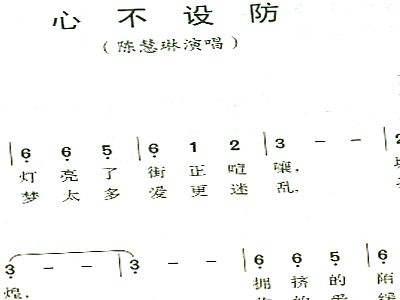 心不设防
(陈慧琳演唱)
| 6 6 5 | 6 1 2 | 3 - - | 2
灯亮了 街正喧嚷,
梦太多 爱更迷乱,
3 - - | 3 - - | 6 6 5 | 6
煌, 拥挤的 陌